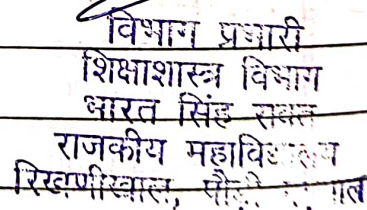 विभाग प्रभारी
शिक्षाशास्त्र विभाग
भारत सिंह रावत
राजकीय महाविद्यालय
रिखणीखाल, पौड़ी